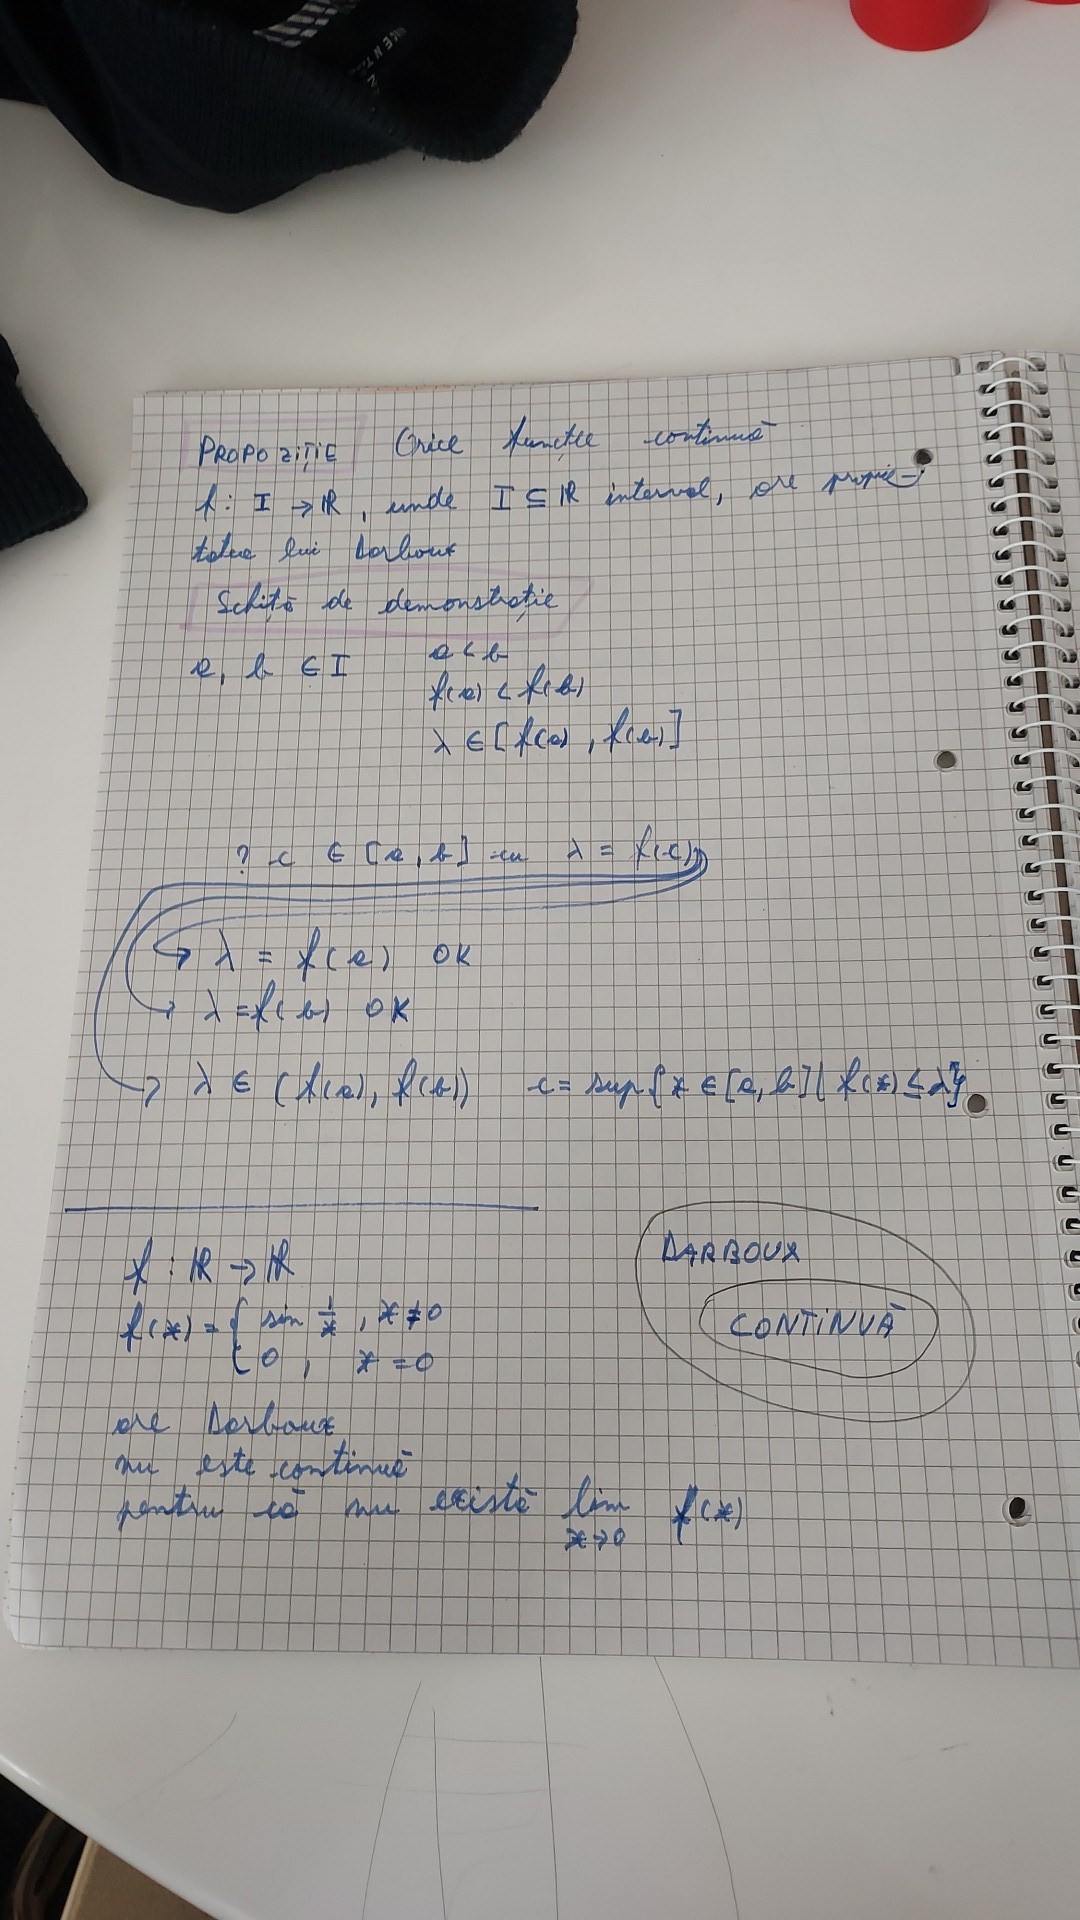 PROPOZIȚIE Orice funcție continuă
f: I → ℝ, unde I ⊆ ℝ interval, are proprie-
tatea lui Darboux
Schiță de demonstrație
a, b ∈ I a < b
f(a) < f(b)
λ ∈ [f(a), f(b)]
? c ∈ [a, b] cu λ = f(c)
→ λ = f(a) OK
→ λ = f(b) OK
→ λ ∈ (f(a), f(b)) c = sup{x ∈ [a, b] | f(x) ≤ λ}
f: ℝ → ℝ
f(x) = { sin 1/x, x ≠ 0
0, x = 0
DARBOUX
CONTINUĂ
are Darboux
nu este continuă
pentru că nu există lim f(x)
x→0